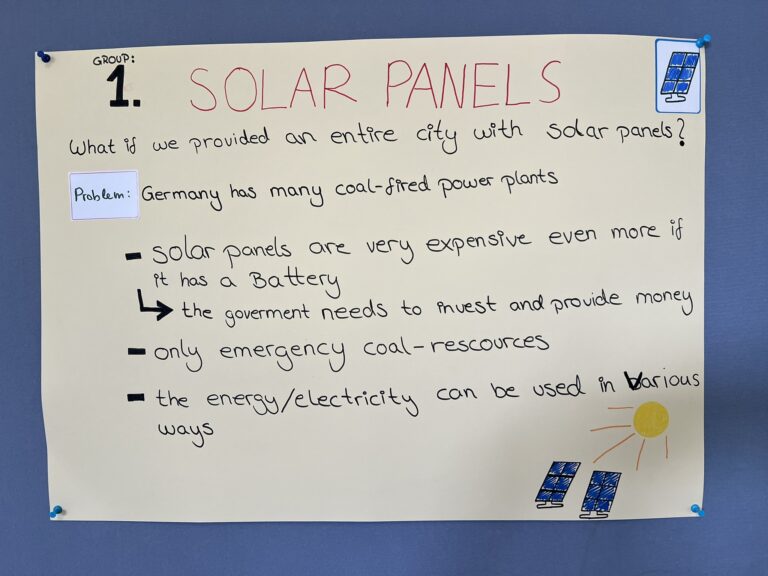 GROUP:
1. SOLAR PANELS
What if we provided an entire city with solar panels?
Problem: Germany has many coal-fired power plants
- solar panels are very expensive even more if
it has a Battery
↳ the goverment needs to invest and provide money
- only emergency coal-rescources
- the energy/electricity can be used in various
ways